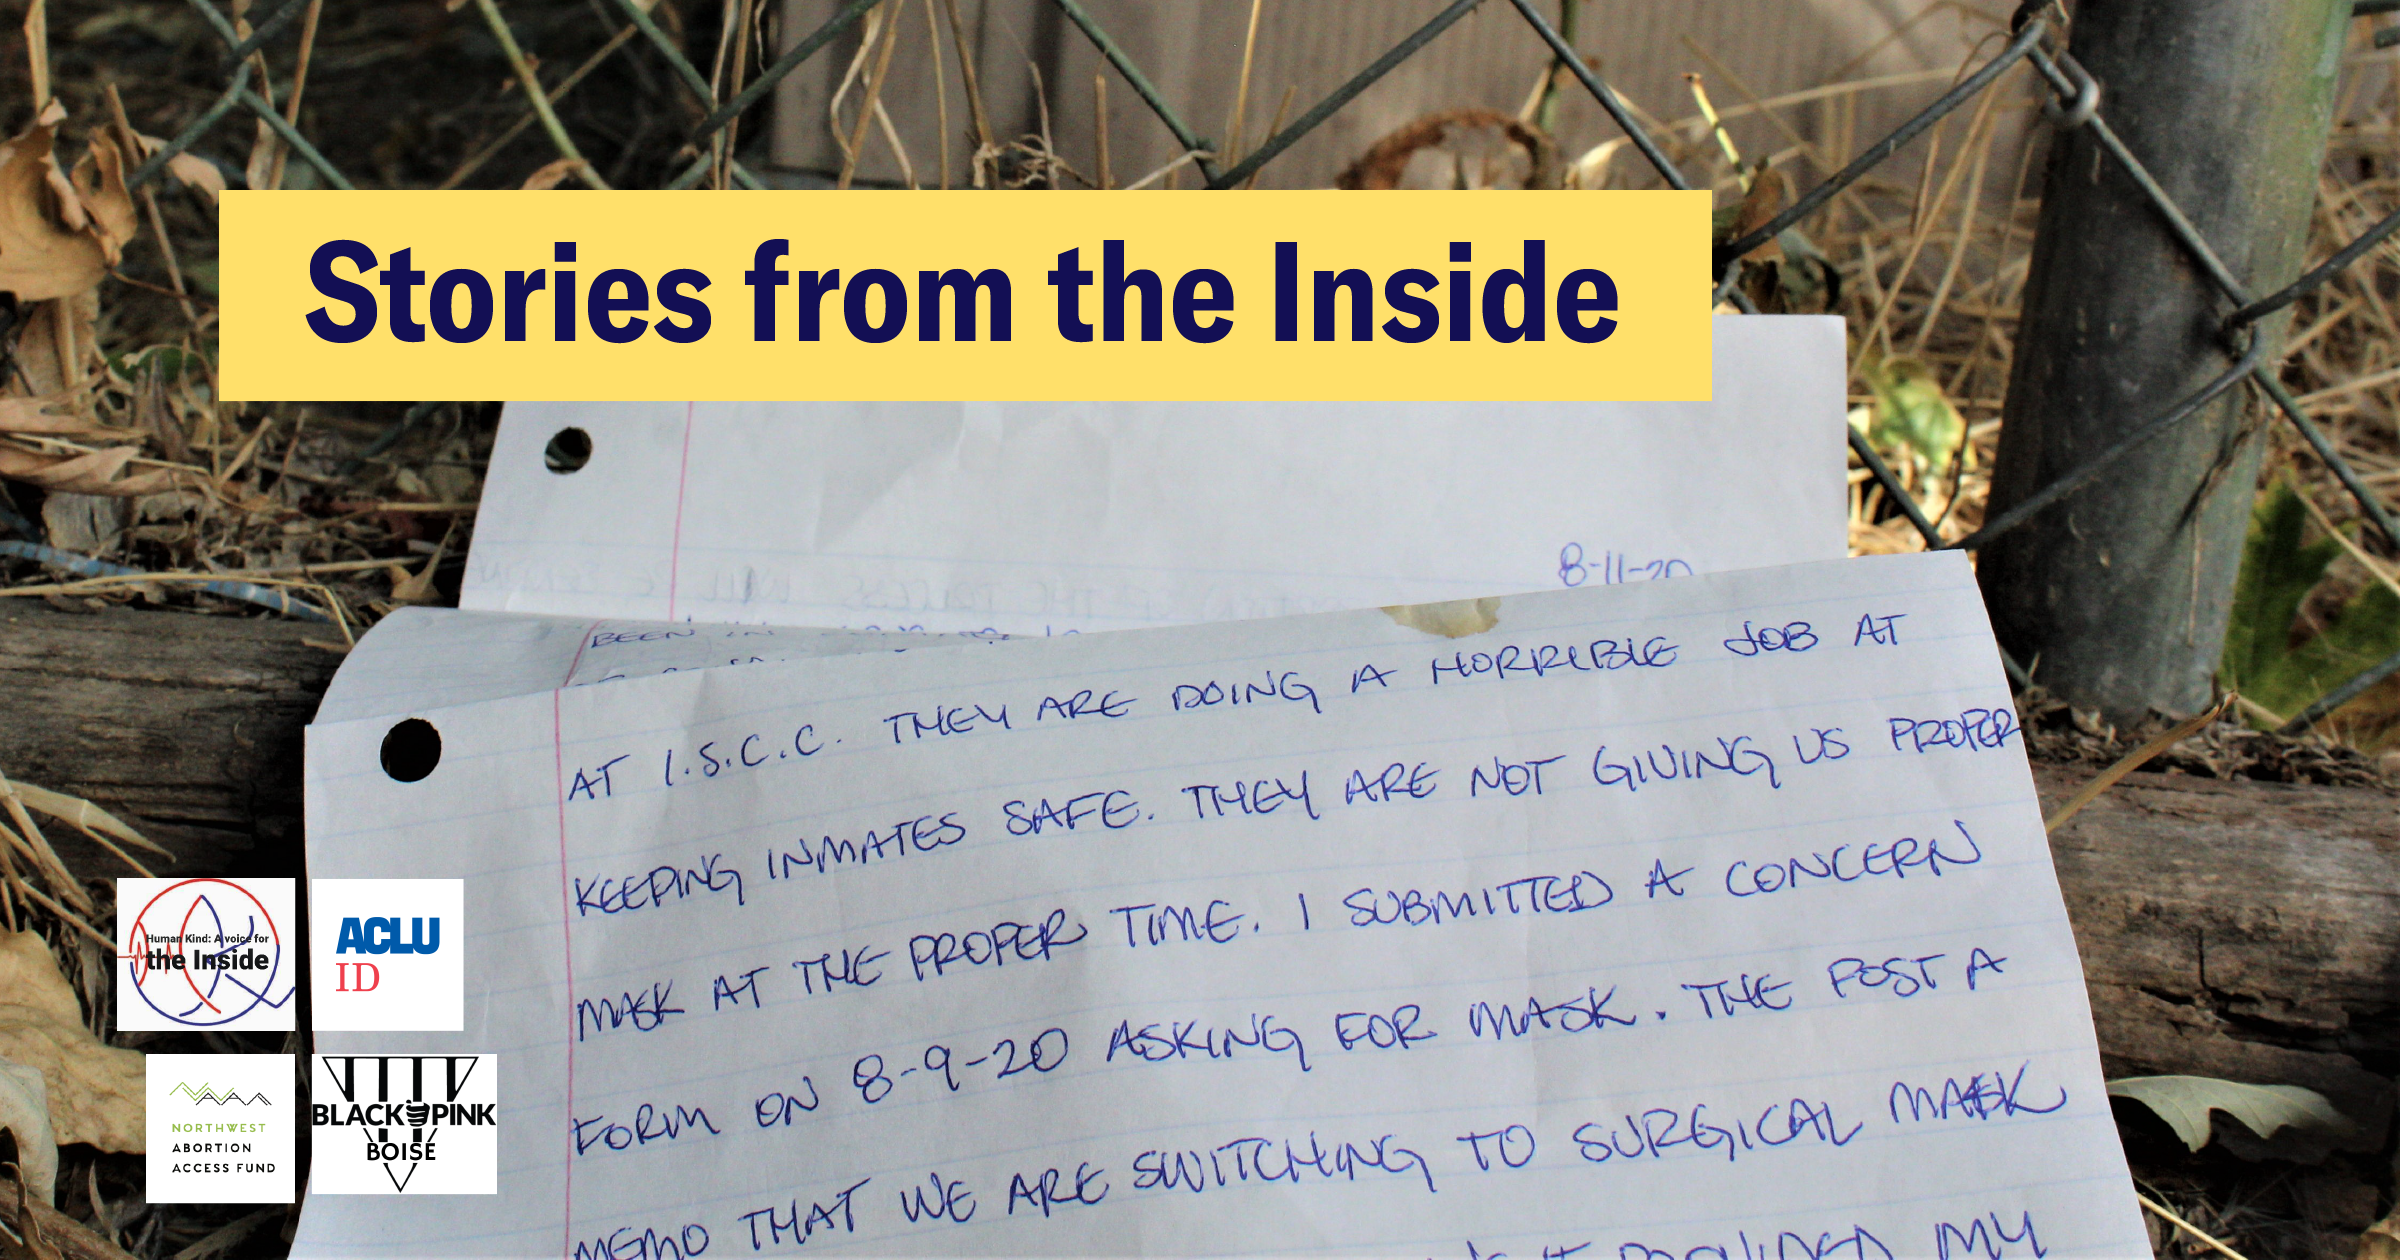 Stories from the Inside
8-11-20
BEEN IN
AT I.S.C.C. THEY ARE DOING A HORRIBLE JOB AT
KEEPING INMATES SAFE. THEY ARE NOT GIVING US PROPER
MASK AT THE PROPER TIME. I SUBMITTED A CONCERN
FORM ON 8-9-20 ASKING FOR MASK. THE POST A
MEMO THAT WE ARE SWITCHING TO SURGICAL MASK
PROVIDED MY
Human Kind: A voice for
the Inside
ACLU
ID
NORTHWEST
ABORTION
ACCESS FUND
BLACK PINK
BOISE